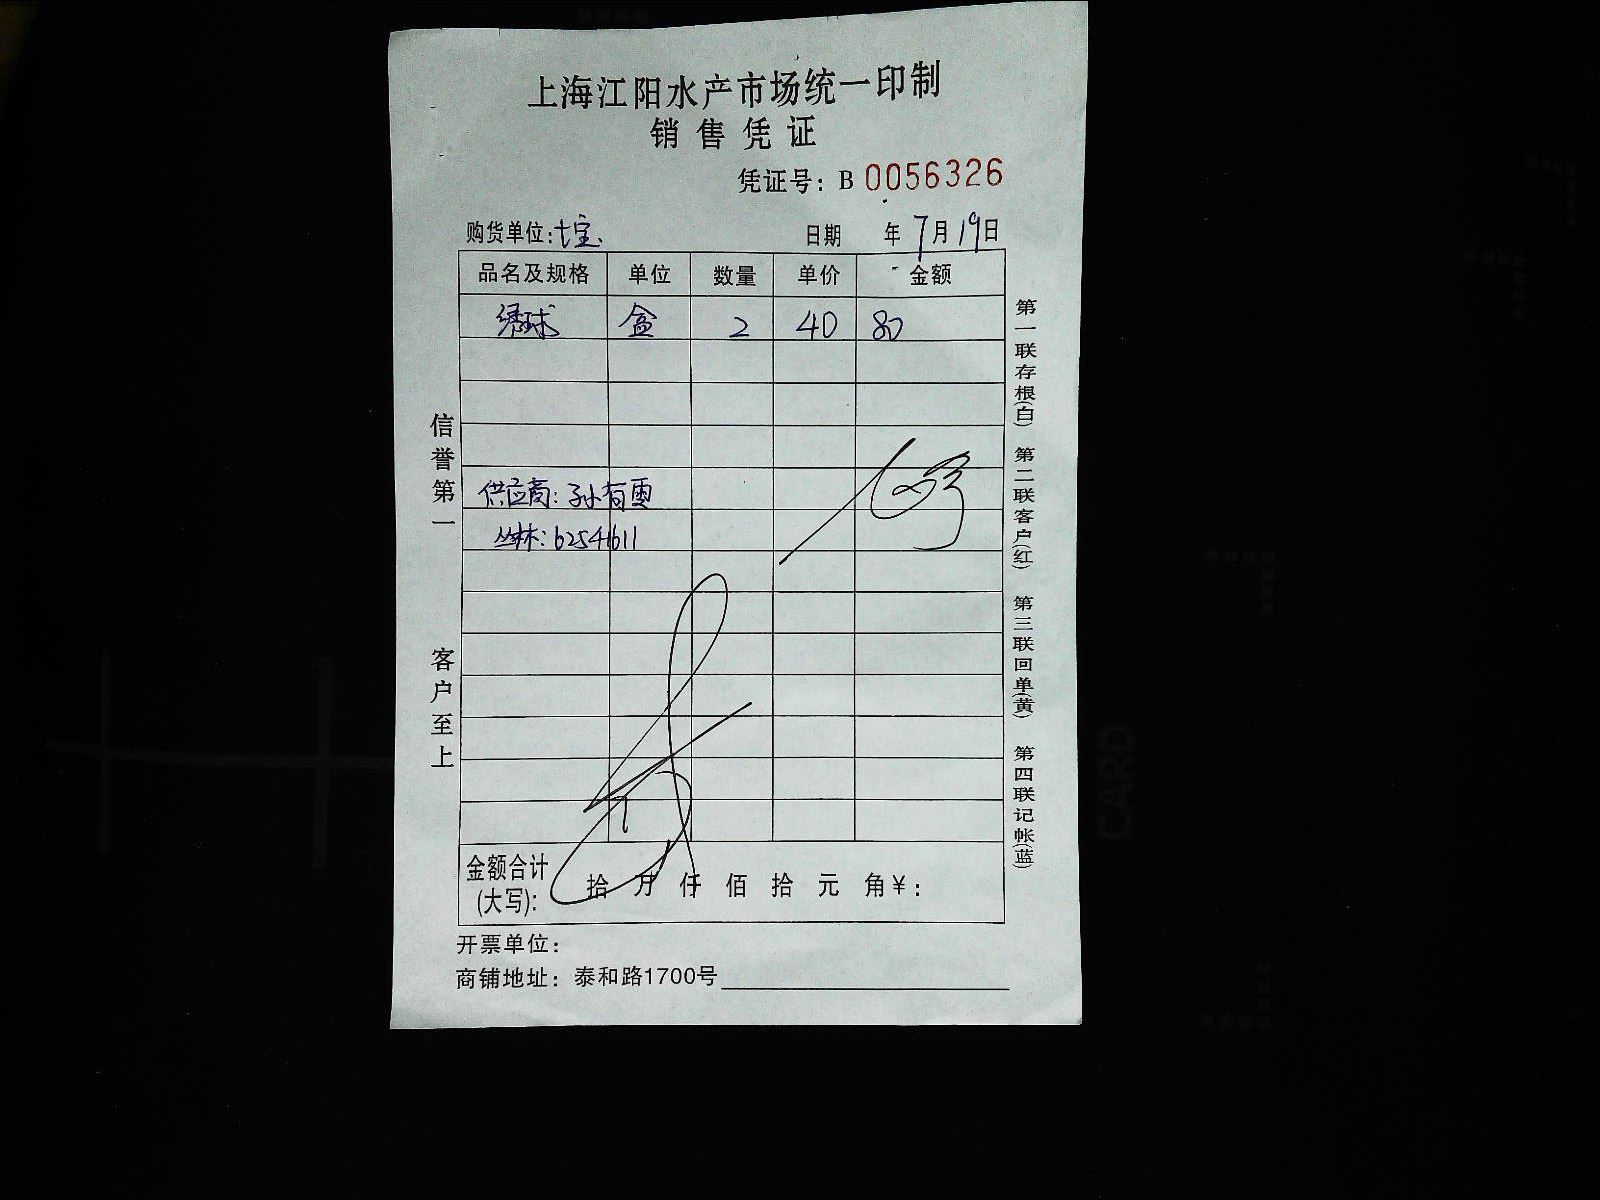 上海江阳水产市场统一印制
销售凭证
凭证号：B 0056326
购货单位：七宝 日期 年7月19日
品名及规格 单位 数量 单价 金额
绣球 盒 2 40 80
供应商：孙有雷
丛林：62541611
金额合计(大写)： 拾 万 仟 佰 拾 元 角￥：
开票单位：
商铺地址：泰和路1700号
信誉第一 客户至上
第一联存根(白) 第二联客户(红) 第三联回单(黄) 第四联记帐(蓝)
CARD